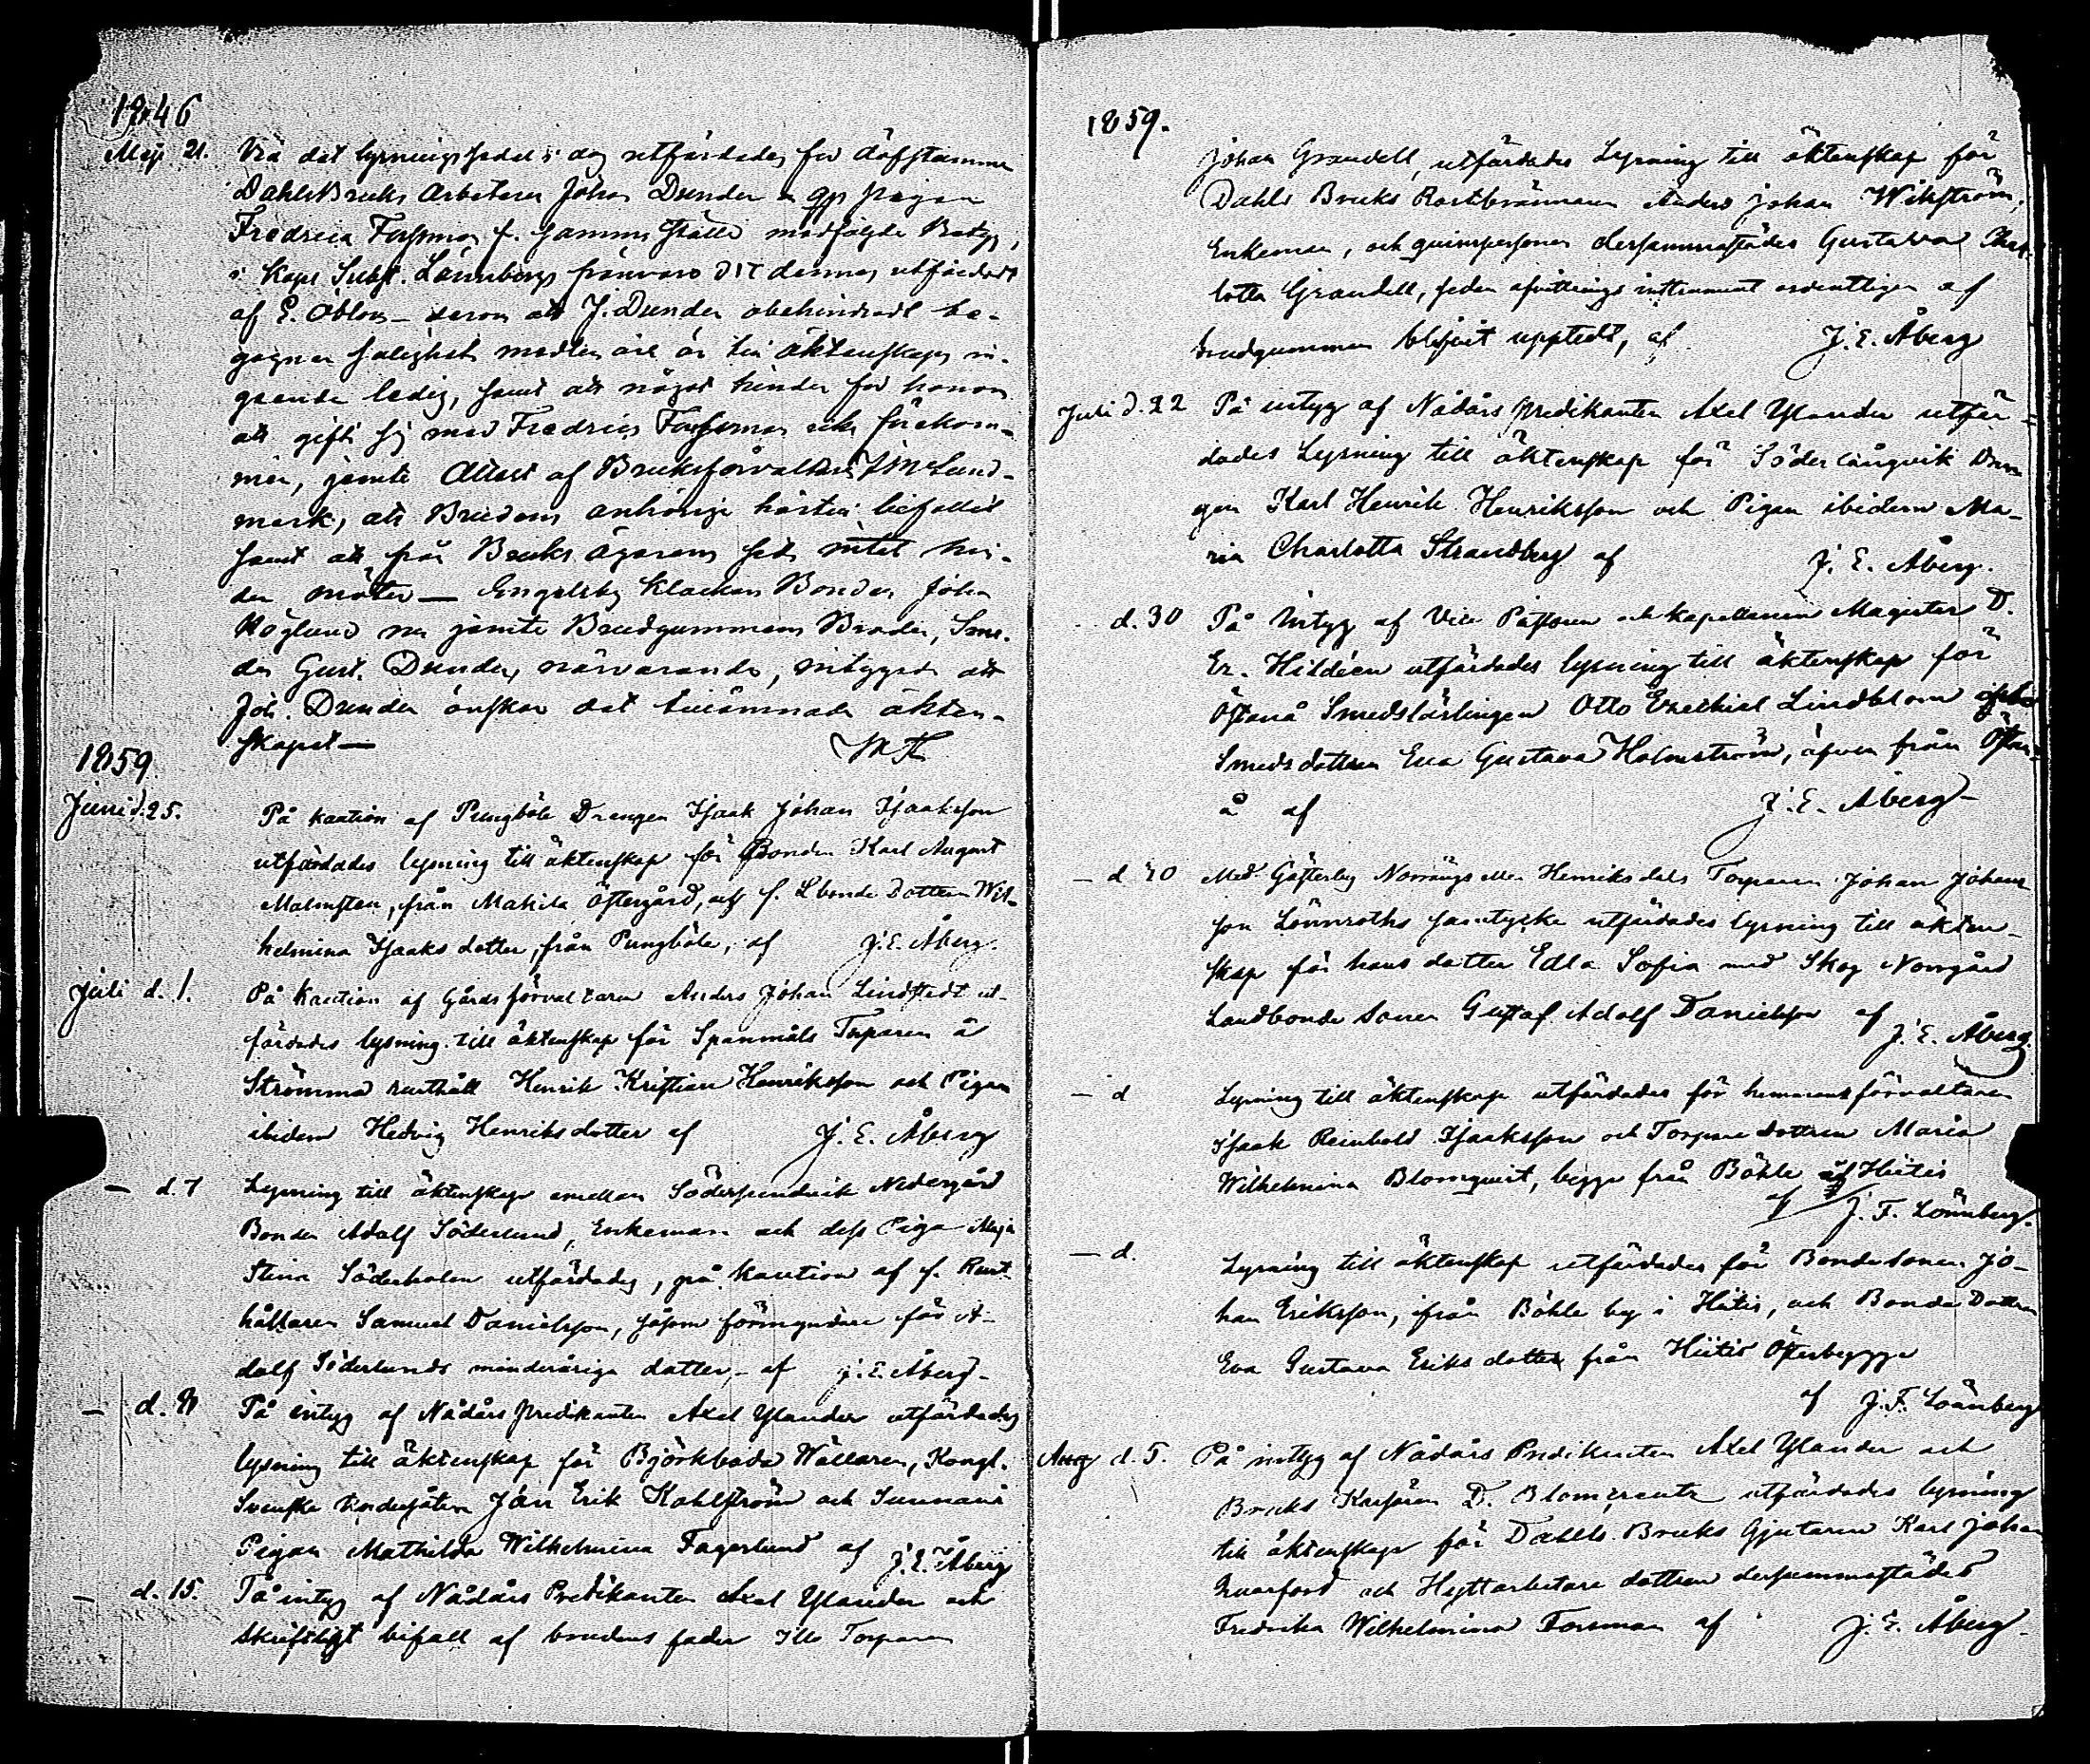 1846
Maji 21. Vid det lysningssedel i dag utfärdades för döfstumma
DahlsBruks Arbetaren Johan Dunder o qp pigan
Fredrica Forssman f. samma ställe medföljde Betyg,
i Kapl Subst. Lönnbergs frånvaro dit dennes utfärdadt
af E. Öblom — derom att J. Dunder obehindradt be-
gagnar salighets medlen och är till Äktenskaps in-
gående ledig, samt att något hinder för honom
att gifta sig med Fredrica Forssman icke förekom-
mer, jemte Attest af Bruksförvaltaren J M Lind-
mark, att Brudens anhörige härtill bifallit
samt att från Bruks ägarens sida intet hin-
der möter — Engelsby Klockars Bonden Johan
Höglund nu jemte Brudgummens Broder, Sme-
den Gust. Dunder, närvarande, intygade att
Joh. Dunder önskar det tillämnade äkten-
skapet —
1859
Juni d. 25. På kaution af Pungböle Drengen Isaak Johan Isaaksson
utfärdades lysning till äktenskap för Bonden Karl August
Malmsten, från Makila Östergård, och f. Lbonde Dottren Wil-
helmina Isaaksdotter, från Pungböle, af J. E. Åberg.
Juli d. 1. På Kaution af Gårdsförvaltaren Anders Johan Lindstedt ut-
färdades lysning till äktenskap för Spanmåls Torparen å
Strömma rusthåll Henrik Kristian Henriksson och Pigan
ibidem Hedvig Henriksdotter af J. E. Åberg
— d. 7 Lysning till äktenskap emellan Södersundvik Nedergård
Bonden Adolf Söderlund, Enkeman och dess Piga Maja
Stina Söderholm utfärdades, på kaution af f. Rust-
hållaren Samuel Danielsson, såsom förmyndare för A-
dolf Söderlunds minderåriga dotter, — af J. E. Åberg —
— d. På intyg af Nådårs predikanten Axel Ylander utfärdades
lysning till äktenskap för Björkboda Wällaren, Kongl.
Svenska undersåten Jan Erik Kohlström och Sunnanå
Pigan Mathilda Wilhelmina Fagerlund af J. E. Åberg
— d. 15. På intyg af Nådårs Predikanten Axel Ylander och
skriftligt bifall af brudens fader Illo Torparen
1859.
Johan Grandell, utfärdades Lysning till äktenskap för
Dahls Bruks Rostbrännaren Anders Johan Wikström,
Enkeman, och qvinspersonen dersammastädes Gustava Char-
lotta Grandell, sedan afvittrings instrument ordentligen af
brudgummen blifvit upptedt, af J. E. Åberg
Juli d. 22 På intyg af Nådårs predikanten Axel Ylander utfär-
dades Lysning till äktenskap för Söderlångvik Dren
gen Karl Henrik Henriksson och Pigan ibidem Ma-
ria Charlotta Strandberg af J. E. Åberg.
d. 30 På Intyg af Vice Pastorn och Kapellanen Magister D.
Er. Hildéen utfärdades lysning till äktenskap för
Östanå Smedslärlingen Otto Ezechiel Lindblom och
Smedsdottren Eva Gustava Holmström, äfven från Östan-
å af J. E. Åberg —
— d. 30 Med Gästerby Norrängs eller Henriksdals Torparen Johan Johans
son Lönnroths samtycke utfärdades lysning till äkten-
skap för hans dotter Edla Sofia med Skog Norrgård
Landbonde sonen Gustaf Adolf Danielsson af J. E. Åberg.
— d Lysning till äktenskap utfärdades för hemmansförvaltaren
Isaak Reinhold Isaaksson och Torpare dottren Maria
Wilhelmina Blomqvist, begge från Böhle af Hiitis
af J. F. Lönnberg.
— d. Lysning till äktenskap utfärdades för Bondesonen Jo-
han Eriksson, ifrån Böhle by i Hiitis, och Bonde Dottren
Eva Gustava Eriksdotter från Hiitis Östergygge
af J. F. Lönnberg
Aug d. 5. På intyg af Nådårs Predikanten Axel Ylander och
Bruks Kassören D. Blomcrentz utfärdades lysning
till äktenskap för Dahls Bruks Gjutaren Karl Johan
Qvarford och Hyttarbetare dottren dersammastädes
Fredrika Wilhelmina Forsman af J. E. Åberg —